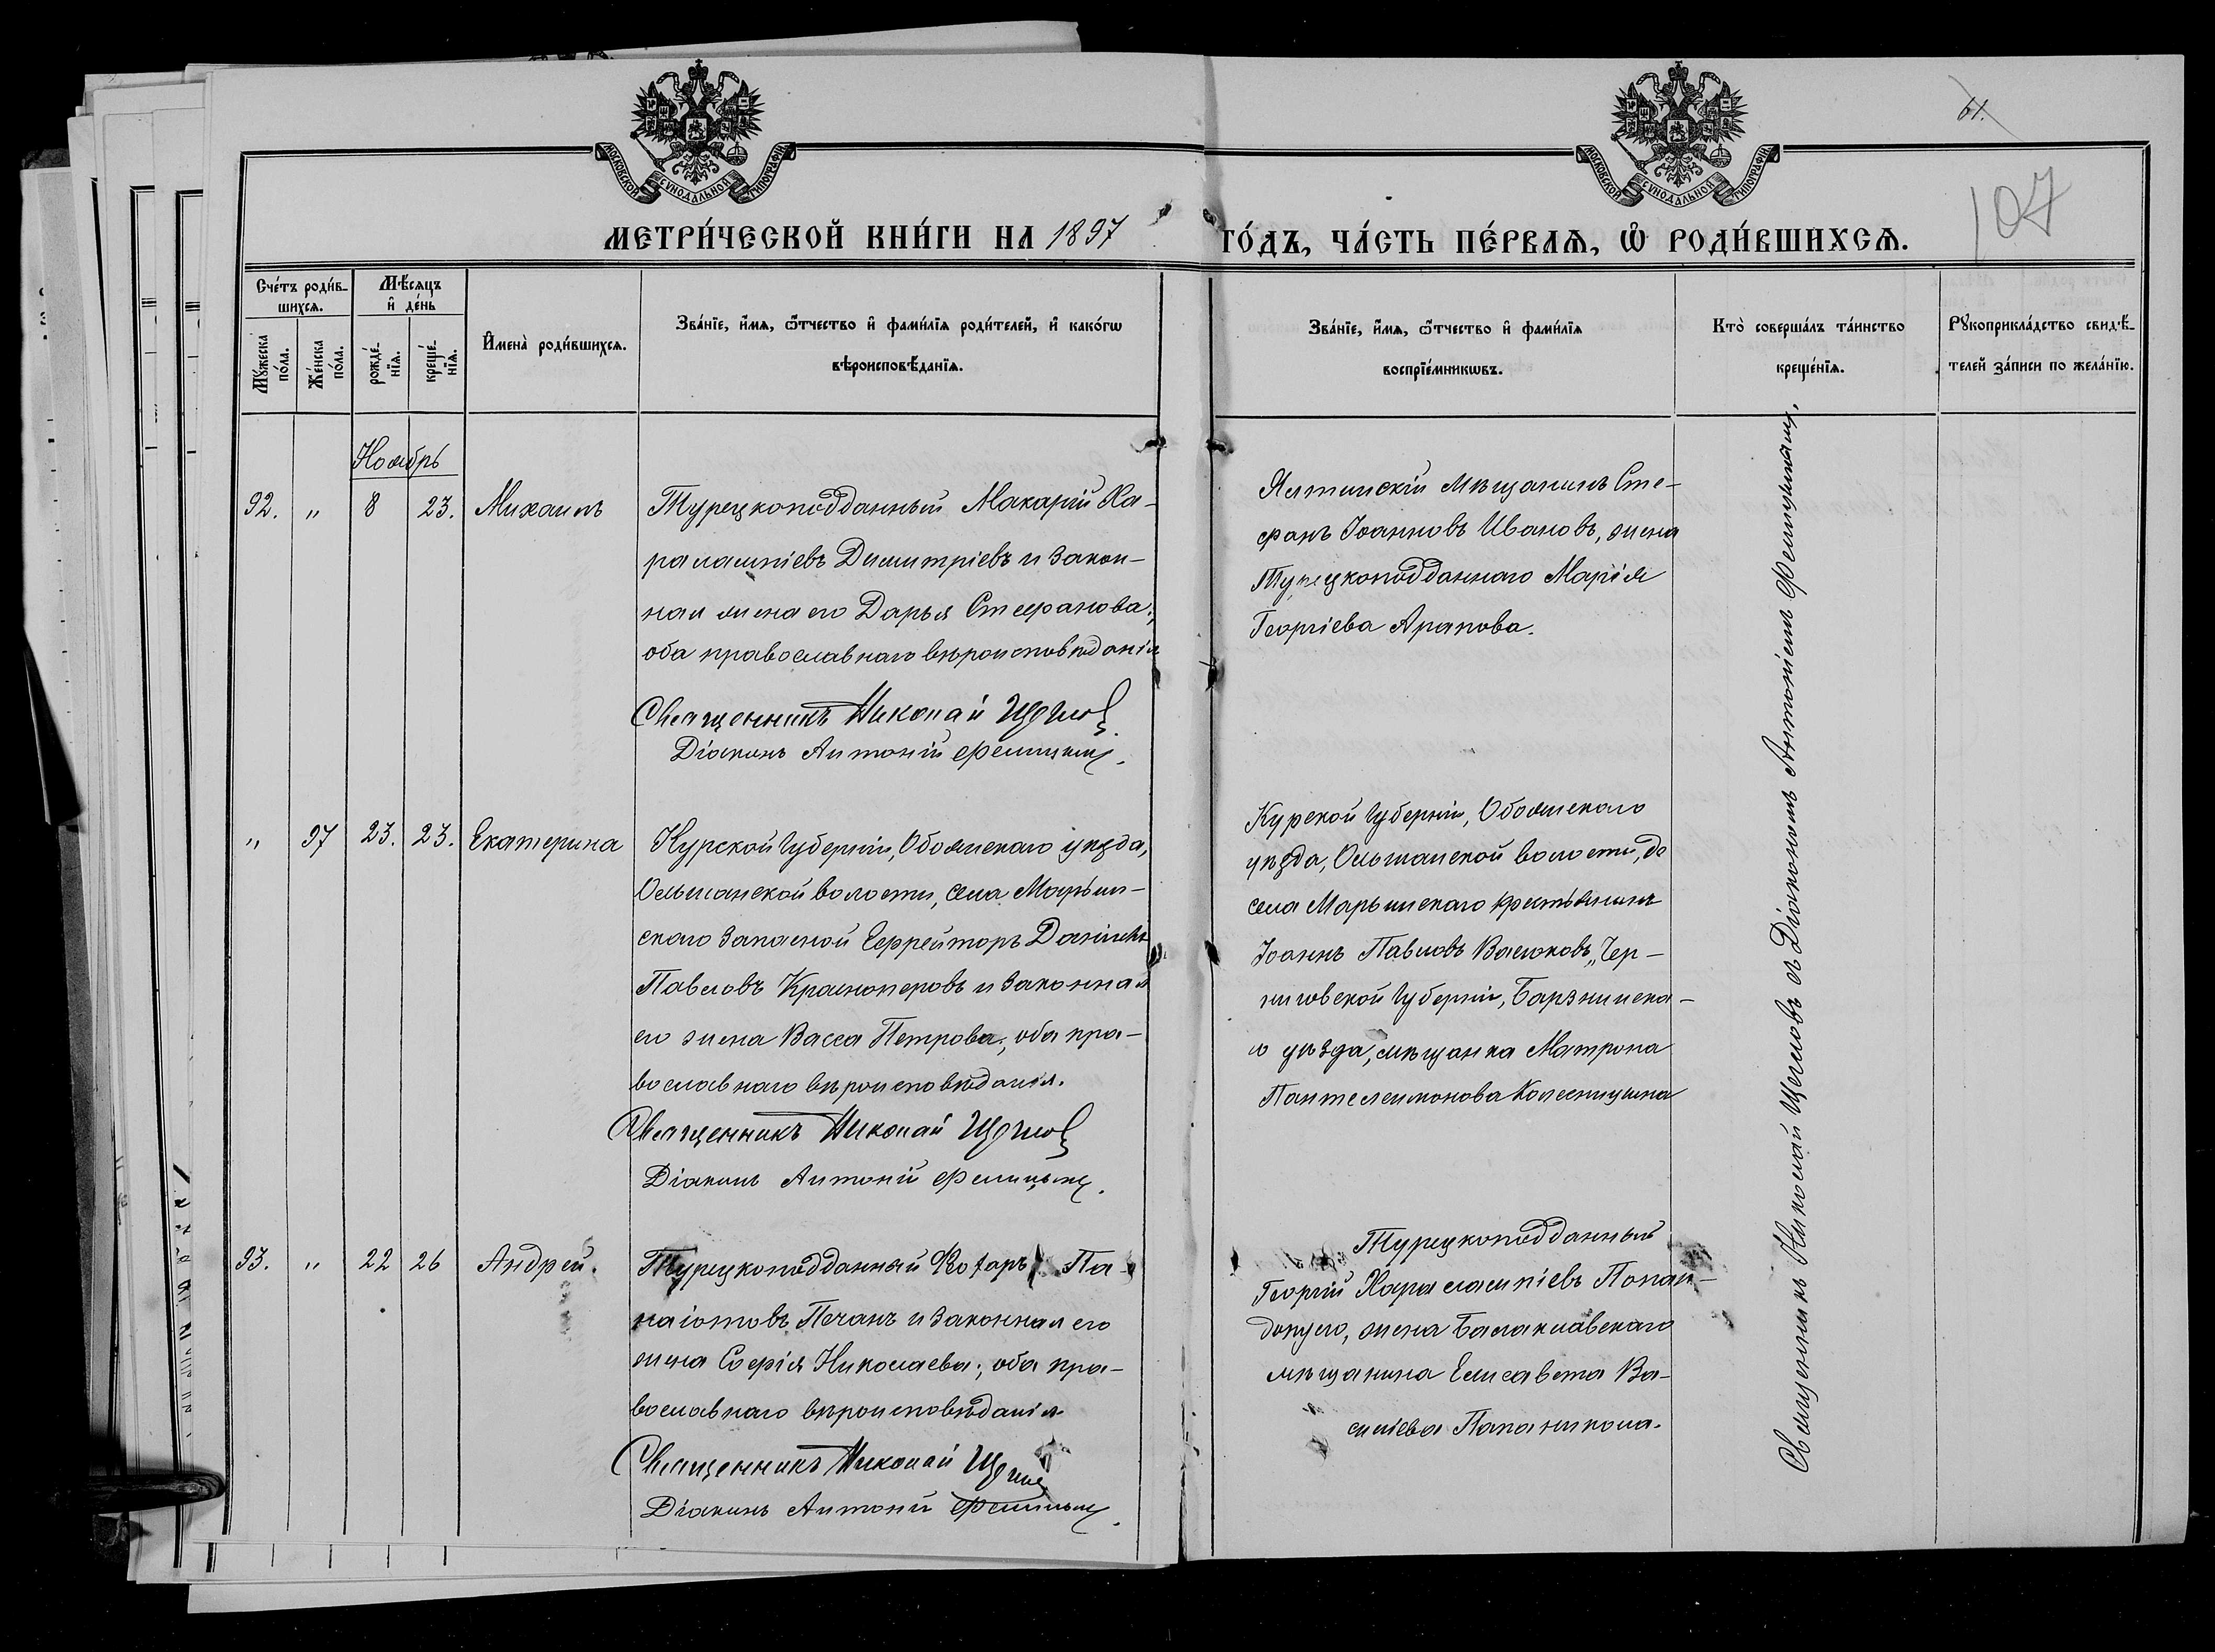 МОСКОВСКОЙ СУНОДАЛЬНОЙ ТИПОГРАФІИ
МОСКОВСКОЙ СУНОДАЛЬНОЙ ТИПОГРАФІИ
61.
107
МЕТРИ́ЧЕСКОЙ КНИ́ГИ НА 1897 ГО́ДЪ, ЧА́СТЬ ПЕ́РВАЯ, Ѡ РОДИ́ВШИХСЯ.
Сче́тъ роди́в-
шихся.
Му́жеска по́ла.
Же́нска по́ла.
Мѣ́сяцъ
и де́нь
рожде́-
нїя.
креще́-
нїя.
Имена̀ роди́вшихся.
Зва́нїе, и́мя, ѻ҆́тчество и фами́лїя роди́телей, и како́гѡ
вѣроисповѣ́данїя.
Зва́нїе, и́мя, ѻ҆́тчество и фами́лїя
воспрїе́мникѡвъ.
Кто̀ соверша́лъ та́инство
креще́нїя.
Рꙋкоприкла́дство свидѣ́-
телей за́писи по жела́нїю.
Ноябрь
92. „ 8 23. Михаилъ
Турецкоподданный Макарій Ха-
рлампіевъ Димитріевъ и закон-
ная жена его Дарья Стефанова;
оба православнаго вѣроисповѣданія
Священникъ Николай Щегловъ
Діаконъ Антоній Фелицынъ.
Ялтинскій мѣщанинъ Сте-
фанъ Іоанновъ Ивановъ, жена
Турецкоподданнаго Марія
Георгіева Арапова.
„ 97 23. 23. Екатерина
Курской губерніи, Обоянскаго уѣзда,
Ольшанской волости, села Марьин-
скаго запасной Ефрейторъ Даніилъ
Павловъ Красноперовъ и законная
его жена Васса Петрова; оба пра-
вославнаго вѣроисповѣданія.
Священникъ Николай Щегловъ
Діаконъ Антоній Фелицынъ.
Курской губерніи, Обоянскаго
уѣзда, Ольшанской волости,
села Марьинскаго крестьянинъ
Іоаннъ Павловъ Чер-
ниговской губерніи, Барзнинска-
го уѣзда, мѣщанка Матрона
Пантелеимонова
93. „ 22 26 Андрей.
Турецкоподданный Па-
наіотовъ Печанъ и законная его
жена Софія Николаева; оба пра-
вославнаго вѣроисповѣданія
Священникъ Николай Щегловъ
Діаконъ Антоній Фелицынъ.
Турецкоподданный
Георгій Харалампіевъ Попан-
допуло, жена Балаклавскаго
мѣщанина Елисавета Ва-
силіева Папаникола.
Священникъ Николай Щегловъ съ Діакономъ Антоніемъ Фелицынымъ.